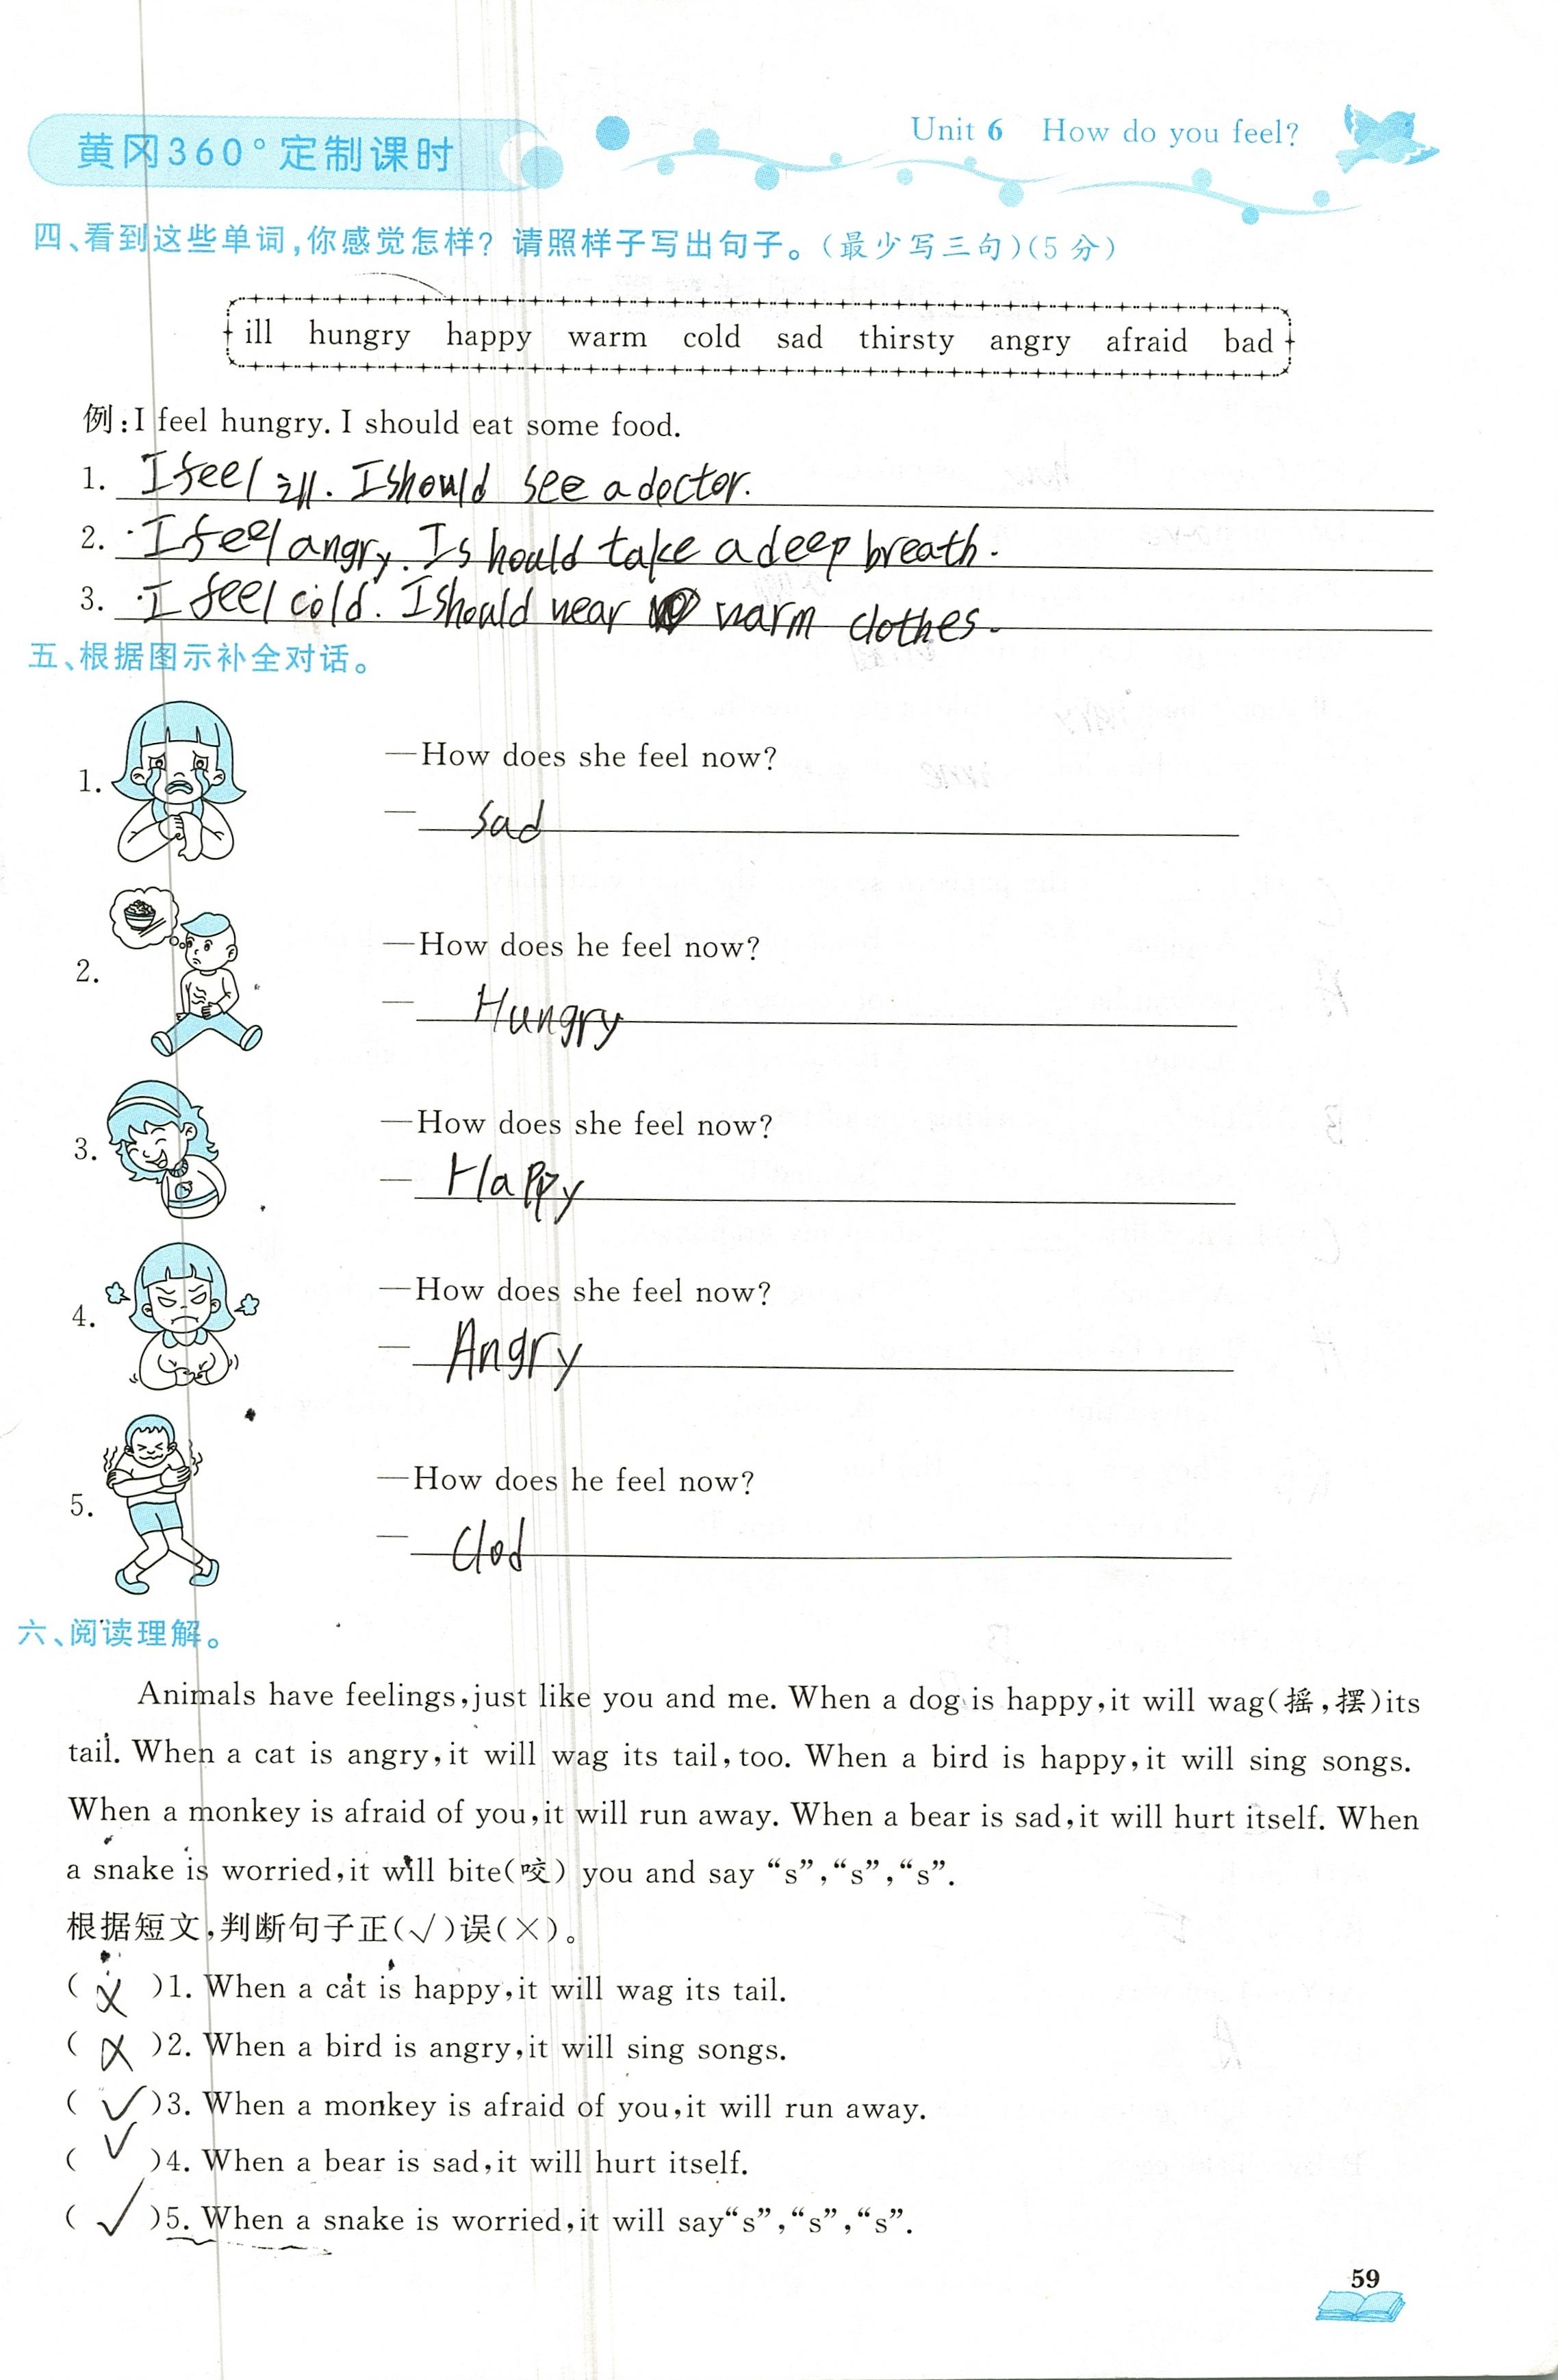 黄冈360°定制课时
Unit 6 How do you feel?
四、看到这些单词,你感觉怎样? 请照样子写出句子。(最少写三句)(5分)
ill hungry happy warm cold sad thirsty angry afraid bad
例:I feel hungry. I should eat some food.
1. I feel ill. I should see a doctor.
2. I feel angry. I should take a deep breath.
3. I feel cold. I should wear warm clothes.
五、根据图示补全对话。
1. —How does she feel now?
— sad
2. —How does he feel now?
— Hungry
3. —How does she feel now?
— Happy
4. —How does she feel now?
— Angry
5. —How does he feel now?
— Clod
六、阅读理解。
Animals have feelings,just like you and me. When a dog is happy,it will wag(摇,摆)its
tail. When a cat is angry,it will wag its tail,too. When a bird is happy,it will sing songs.
When a monkey is afraid of you,it will run away. When a bear is sad,it will hurt itself. When
a snake is worried,it will bite(咬) you and say “s”,“s”,“s”.
根据短文,判断句子正(√)误(×)。
( × )1. When a cat is happy,it will wag its tail.
( × )2. When a bird is angry,it will sing songs.
( √ )3. When a monkey is afraid of you,it will run away.
( √ )4. When a bear is sad,it will hurt itself.
( √ )5. When a snake is worried,it will say“s”,“s”,“s”.
59